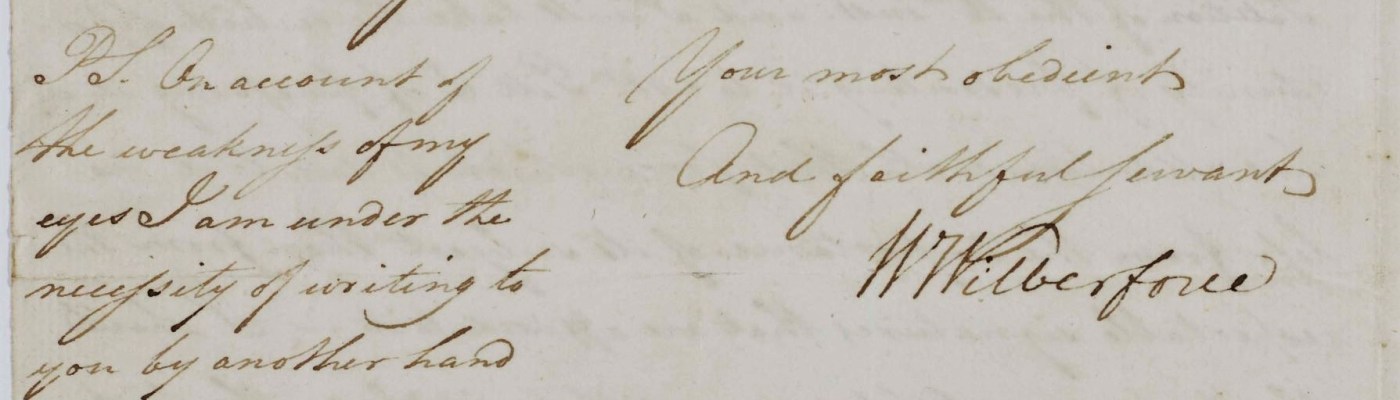 Your most obedient
And faithful Servant
W Wilberforce
P.S. On account of
the weakness of my
eyes I am under the
necessity of writing to
you by another hand